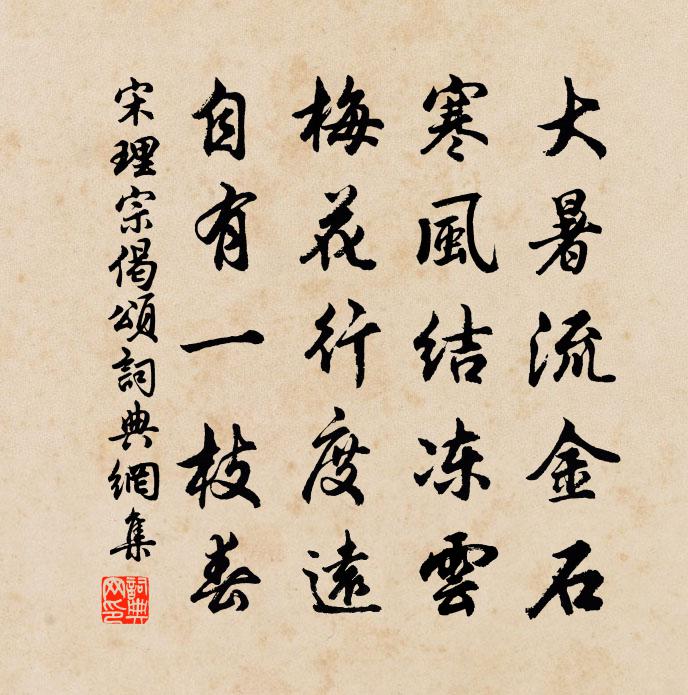 大暑流金石
寒風结冻雲
梅花行度遠
自有一枝春
宋理宗偈頌詞典網集
詞典网印